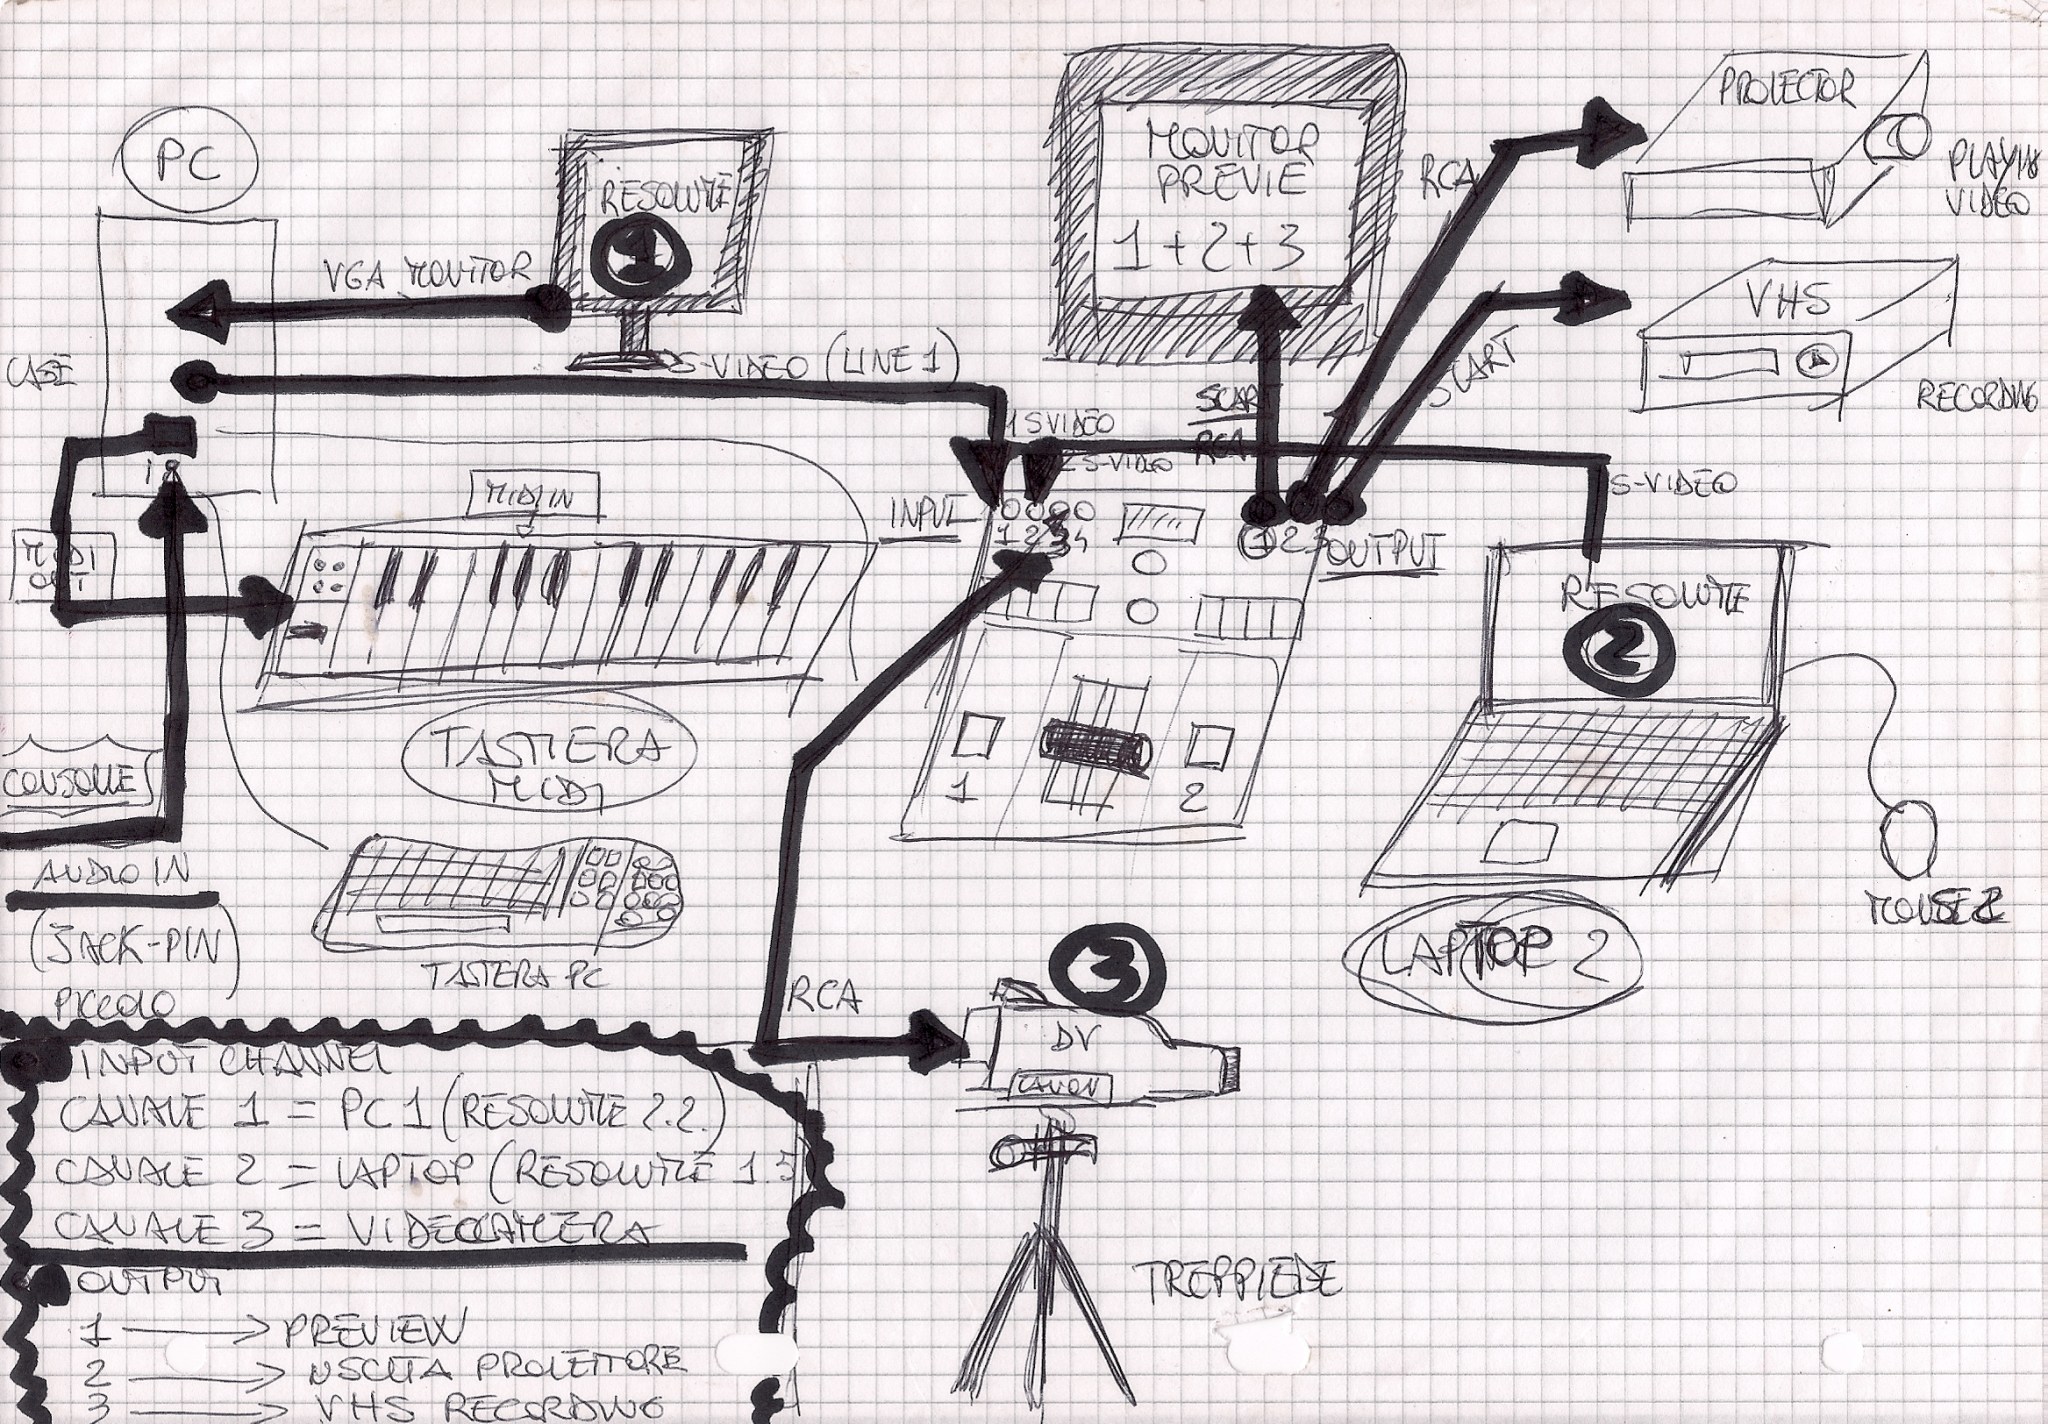 PC
RESOLUME
1
VGA MONITOR
CASE
S-VIDEO (LINE 1)
MONITOR
PREVIE
1+2+3
PROIECTOR
RCA
VIDEO
VHS
SCART
RECORDING
SCART
RCA
1 SVIDEO
2 S-VIDEO
S-VIDEO
MIDI IN
INPUT
1 2 3 4
1 2 3
OUTPUT
MIDI
OUT
RESOLUME
2
TASTIERA
MIDI
CONSOLLE
1
2
AUDIO IN
(JACK-PIN)
PICCOLO
TASTIERA PC
MOUSE 2
LAPTOP 2
RCA
3
DV
CANON
TREPPIEDE
INPUT CHANNEL
CANALE 1 = PC1 (RESOLUME 2.2.)
CANALE 2 = LAPTOP (RESOLUME 1.5
CANALE 3 = VIDEOCAMERA
OUTPUT
1 → PREVIEW
2 → USCITA PROIETTORE
3 → VHS RECORDING